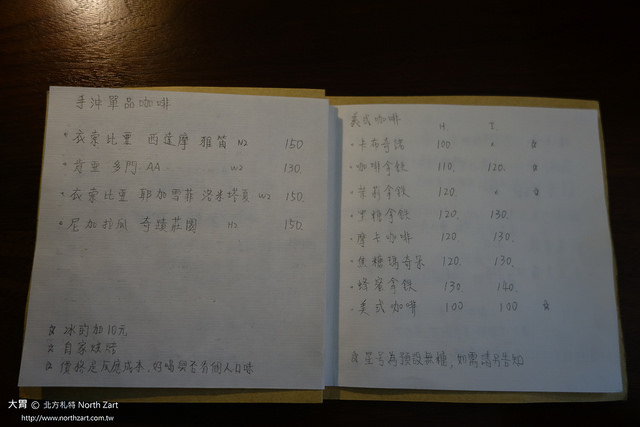 手沖單品咖啡
• 衣索比亞 西達摩 雅笛 H2 150
• 肯亞 多門 AA W2 130.
• 衣索比亞 耶加雪菲 洛米塔夏 W2 150.
• 尼加拉瓜 奇蹟莊園 H2 150.
☆ 冰的加10元
☆ 自家烘焙
☆ 價格是反應成本，好喝與否看個人口味
義式咖啡 H. I.
• 卡布奇諾 100 x ☆
• 咖啡拿鐵 110. 120. ☆
• 茉莉拿鐵 120. x ☆
• 黑糖拿鐵 120. 130.
• 摩卡咖啡 120 130.
• 焦糖瑪奇朵 120. 130.
• 蜂蜜拿鐵 130 140.
• 美式咖啡 100 100 ☆
☆ 星号為預設無糖，如需請另告知
大胃 © 北方札特 North Zart
http://www.northzart.com.tw